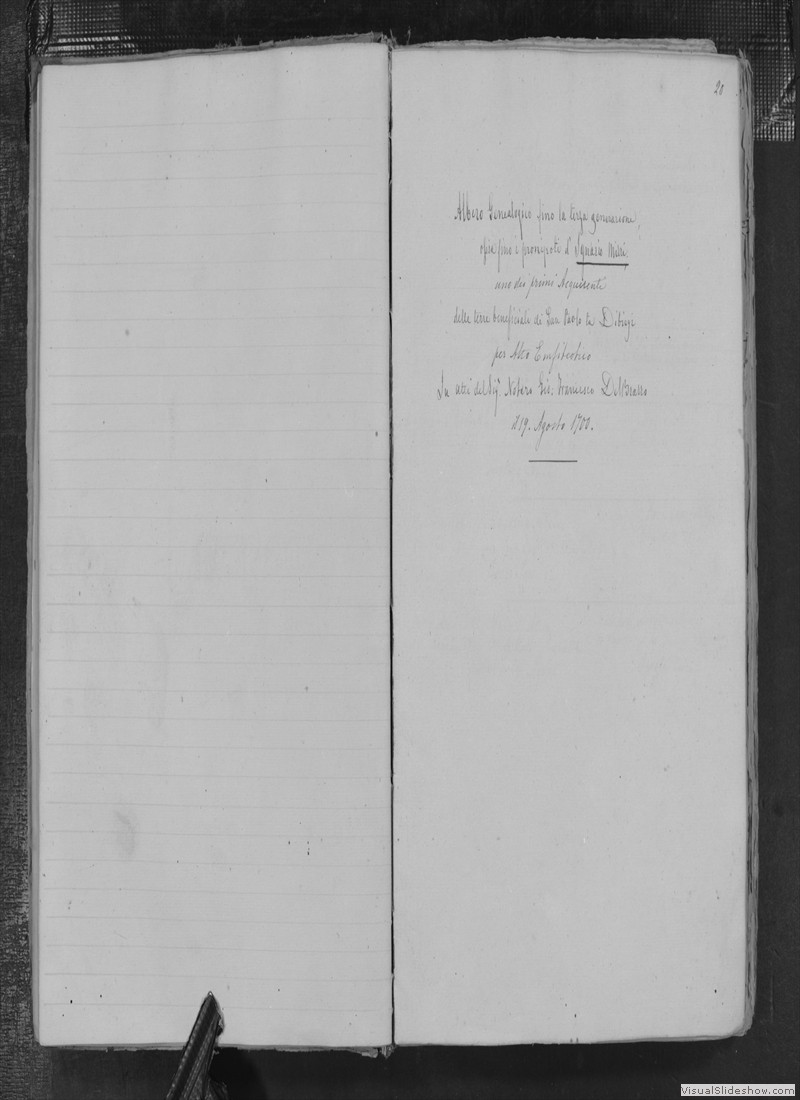 20
Albero Genealogico fino la terza generazione,
ossia fino i pronipoti d' Ignazio Missi,
uno dei primi Acquirenti
delle terre beneficiali di San Paolo la
per Atto Enfiteotico
In atti del Sigr. Notaro Gio: Francesco
il 19. Agosto 1700.
VisualSlideshow.com